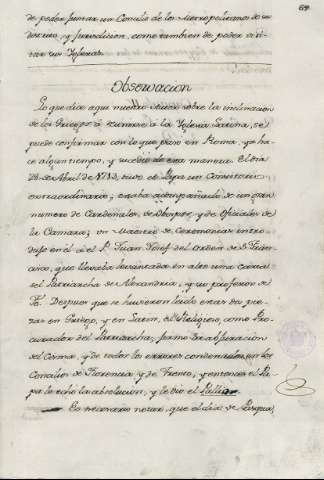 69
de poder juntar un Concilio de los Metropolitanos de su
distrito, y Jurisdicion, como tambien de poder visi-
tar sus Yglesias.
Observacion
Lo que dice aqui nuestro sobre la inclinacion
de los Griegos à reunirse à la Yglesia Latina, se
puede confirmar con lo que paso en Roma, ya ha-
ce algun tiempo, y sucedio de esta manera. El dia
28 de Abril de 1713, tuvo el Papa un Consistorio
extraordinario, estaba acompañado de un gran
numero de Cardenales, de Obispos, y de Oficiales de
la Camara; un Maestro de Ceremonias intro-
dujo en el à el P. Juan Josef del orden de S. Francis-
cano, que llevaba levantada en alto una Carta
del Patriarcha de Alexandria, y su profesion de
Fè. Despues que se huvieron leido estas dos pie-
zas en Griego, y en Latin, el Religioso, como Pro-
curador del Patriarcha, firmò la abjuracion
del Cisma, y de todos los errores condenados en los
Concilios de Florencia y de Trento; y entonces el Pa-
pa le echò la absolucion, y le diò el Pallio.
Es necesario notar, que el dia de Pasqua,